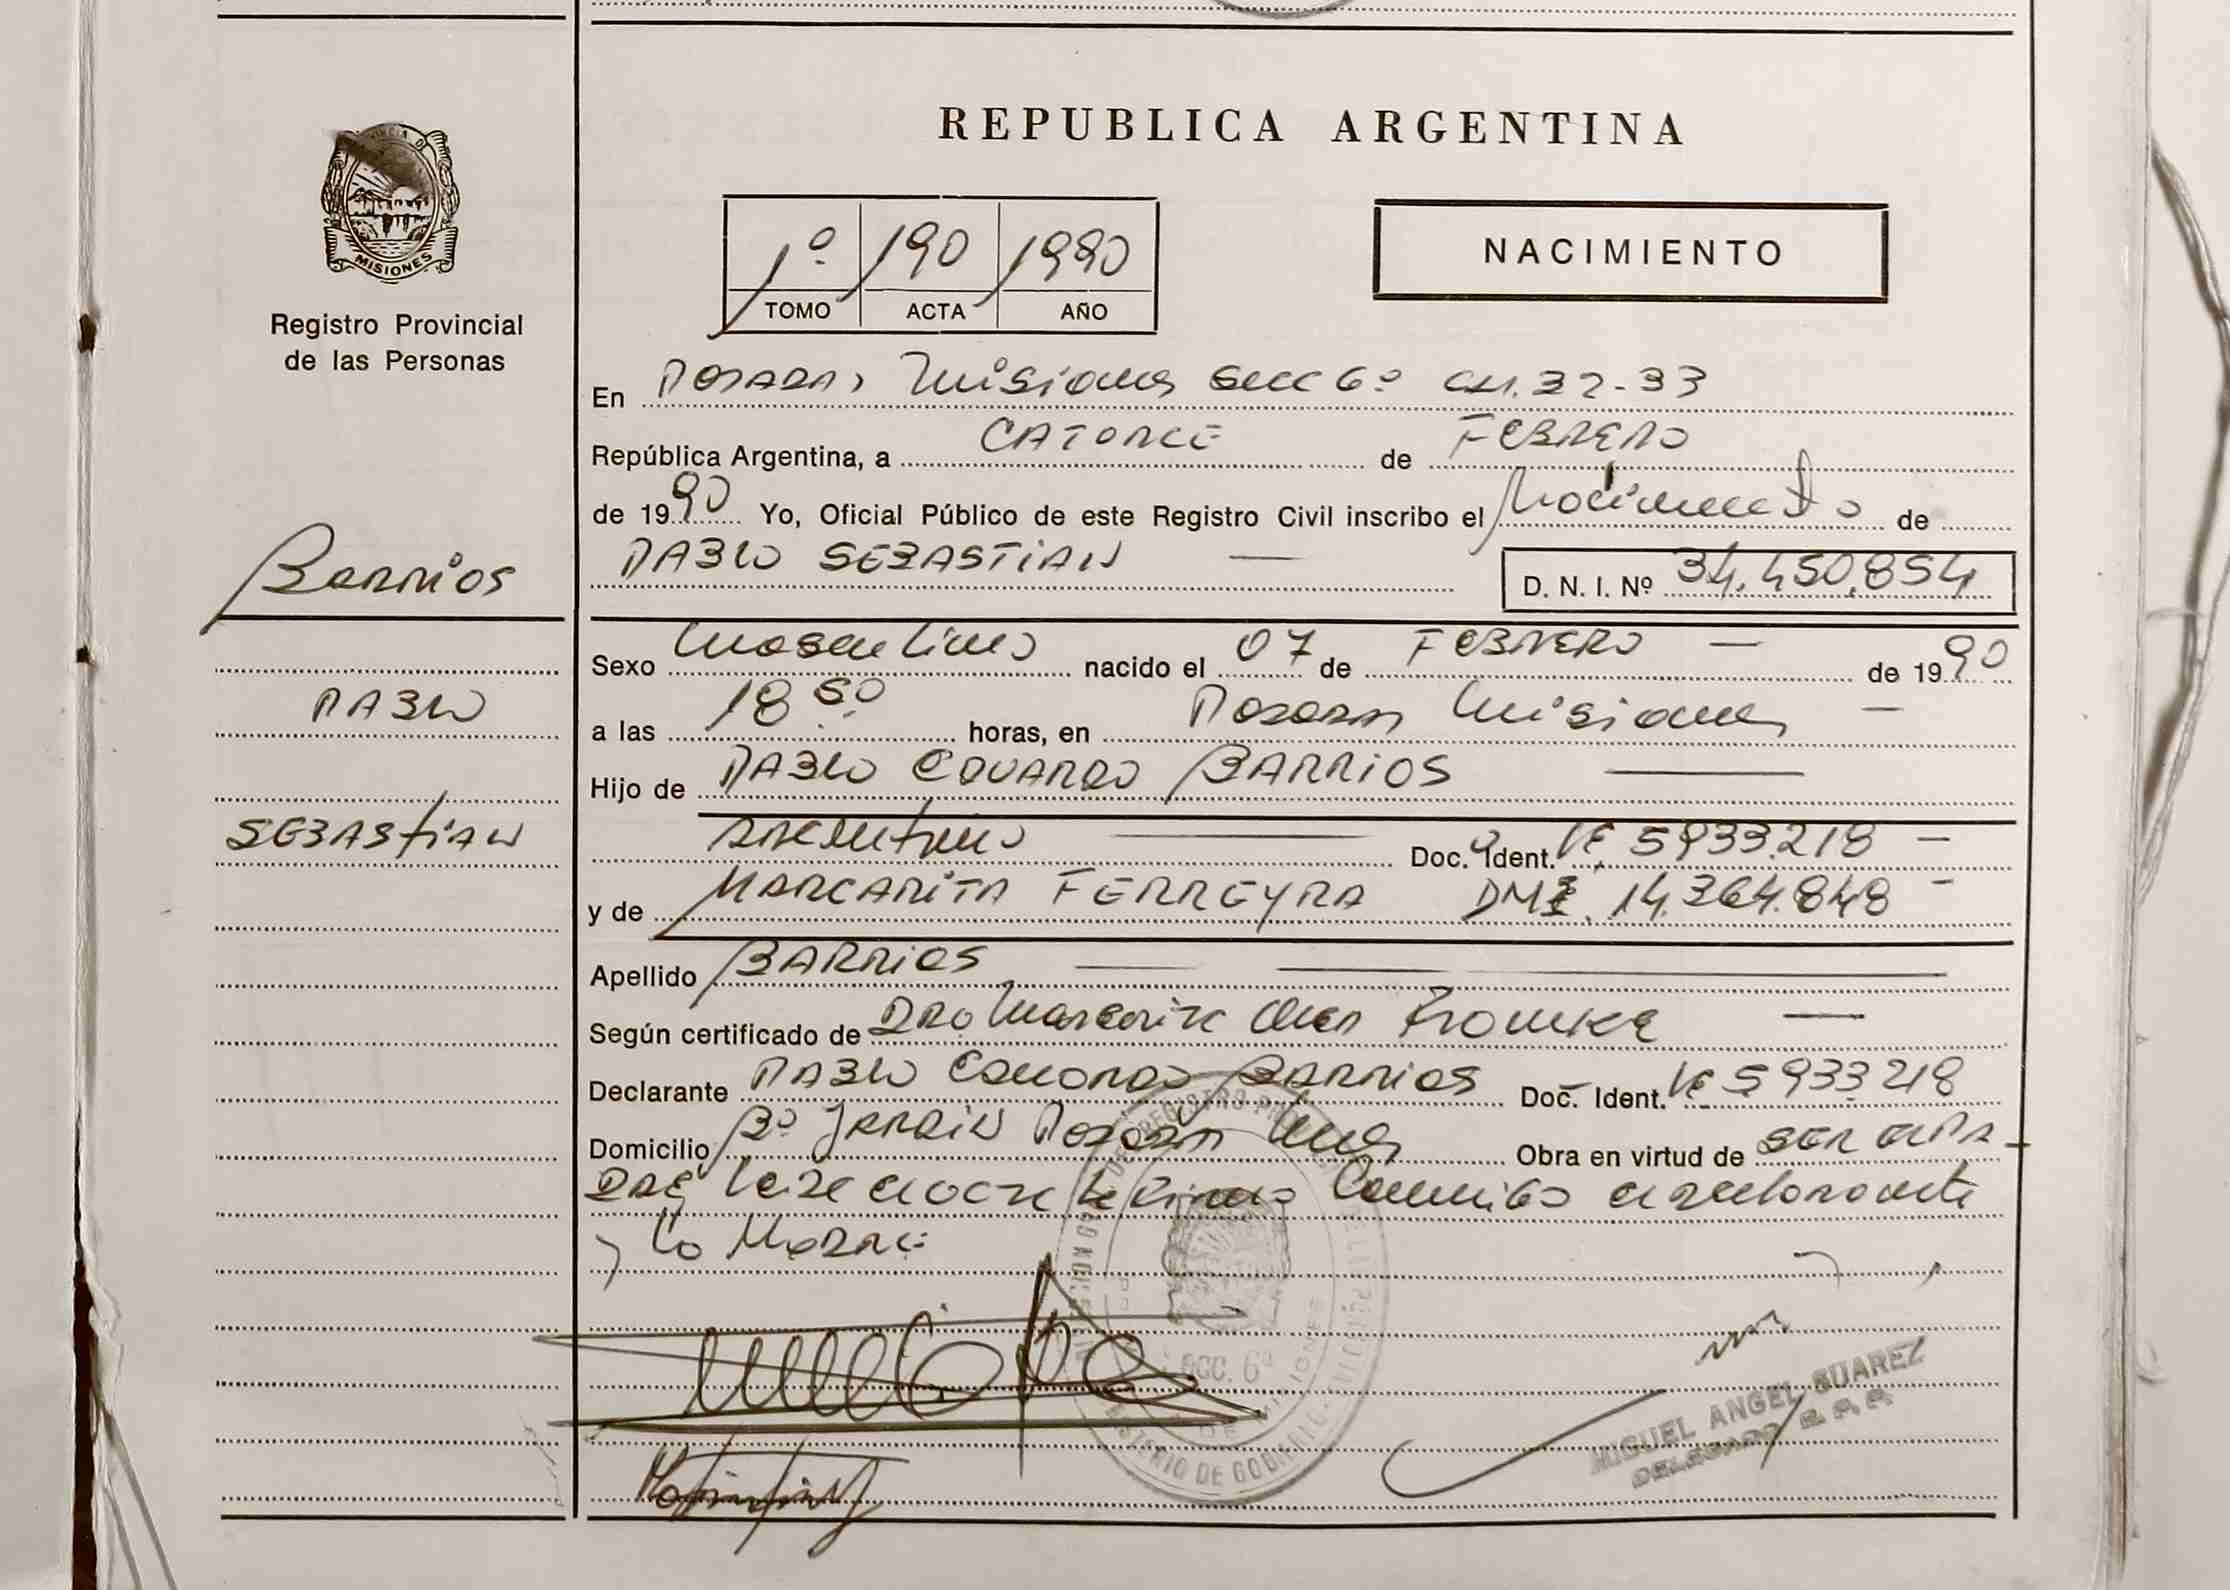 REPUBLICA ARGENTINA
MISIONES
Registro Provincial
de las Personas
1º 190 1990
TOMO ACTA AÑO
NACIMIENTO
En Posadas Misiones Secc 6º CH. 32-33
República Argentina, a CATORCE de FEBRERO
de 1990 Yo, Oficial Público de este Registro Civil inscribo el Nacimiento de
PABLO SEBASTIAN — D. N. I. Nº 34.450.854
Barrios
PABLO
SEBASTIAN
Sexo Masculino nacido el 07 de FEBRERO — de 1990
a las 18 50 horas, en Posadas Misiones —
Hijo de PABLO EDUARDO BARRIOS —
Argentino — Doc. Ident. 5933.218 —
y de MARGARITA FERREYRA DNI. 14.364.848 —
Apellido BARRIOS —
Según certificado de Dra Margarita —
Declarante PABLO Eduardo BARRIOS Doc. Ident. 5933218
Domicilio Bº Jardin Posadas Mnes Obra en virtud de SER EL PA-
DRE Leida el acta la firma Conmigo el declarante
y la Madre
REGISTRO
MINISTERIO DE GOBIERNO
SECC. 6ª
MISIONES
MIGUEL ANGEL SUAREZ
DELEGADO R. P. P.